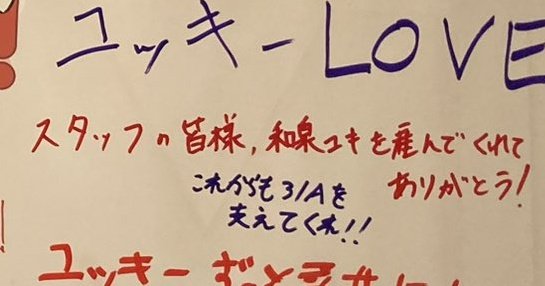 ユッキーLOVE
スタッフの皆様,和泉ユキを産んでくれて
ありがとう!
これからも31Aを
支えてくれ!!
ユッキーずっと